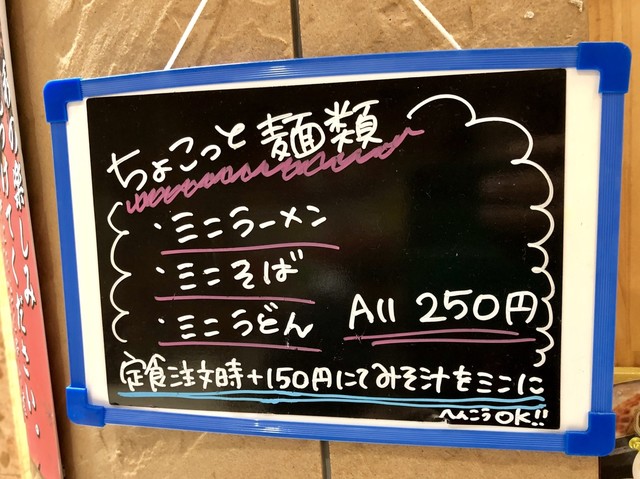 ちょこっと麺類
・ミニラーメン
・ミニそば
・ミニうどん All 250円
定食注文時+150円にてみそ汁をミニに
へんこうOK!!